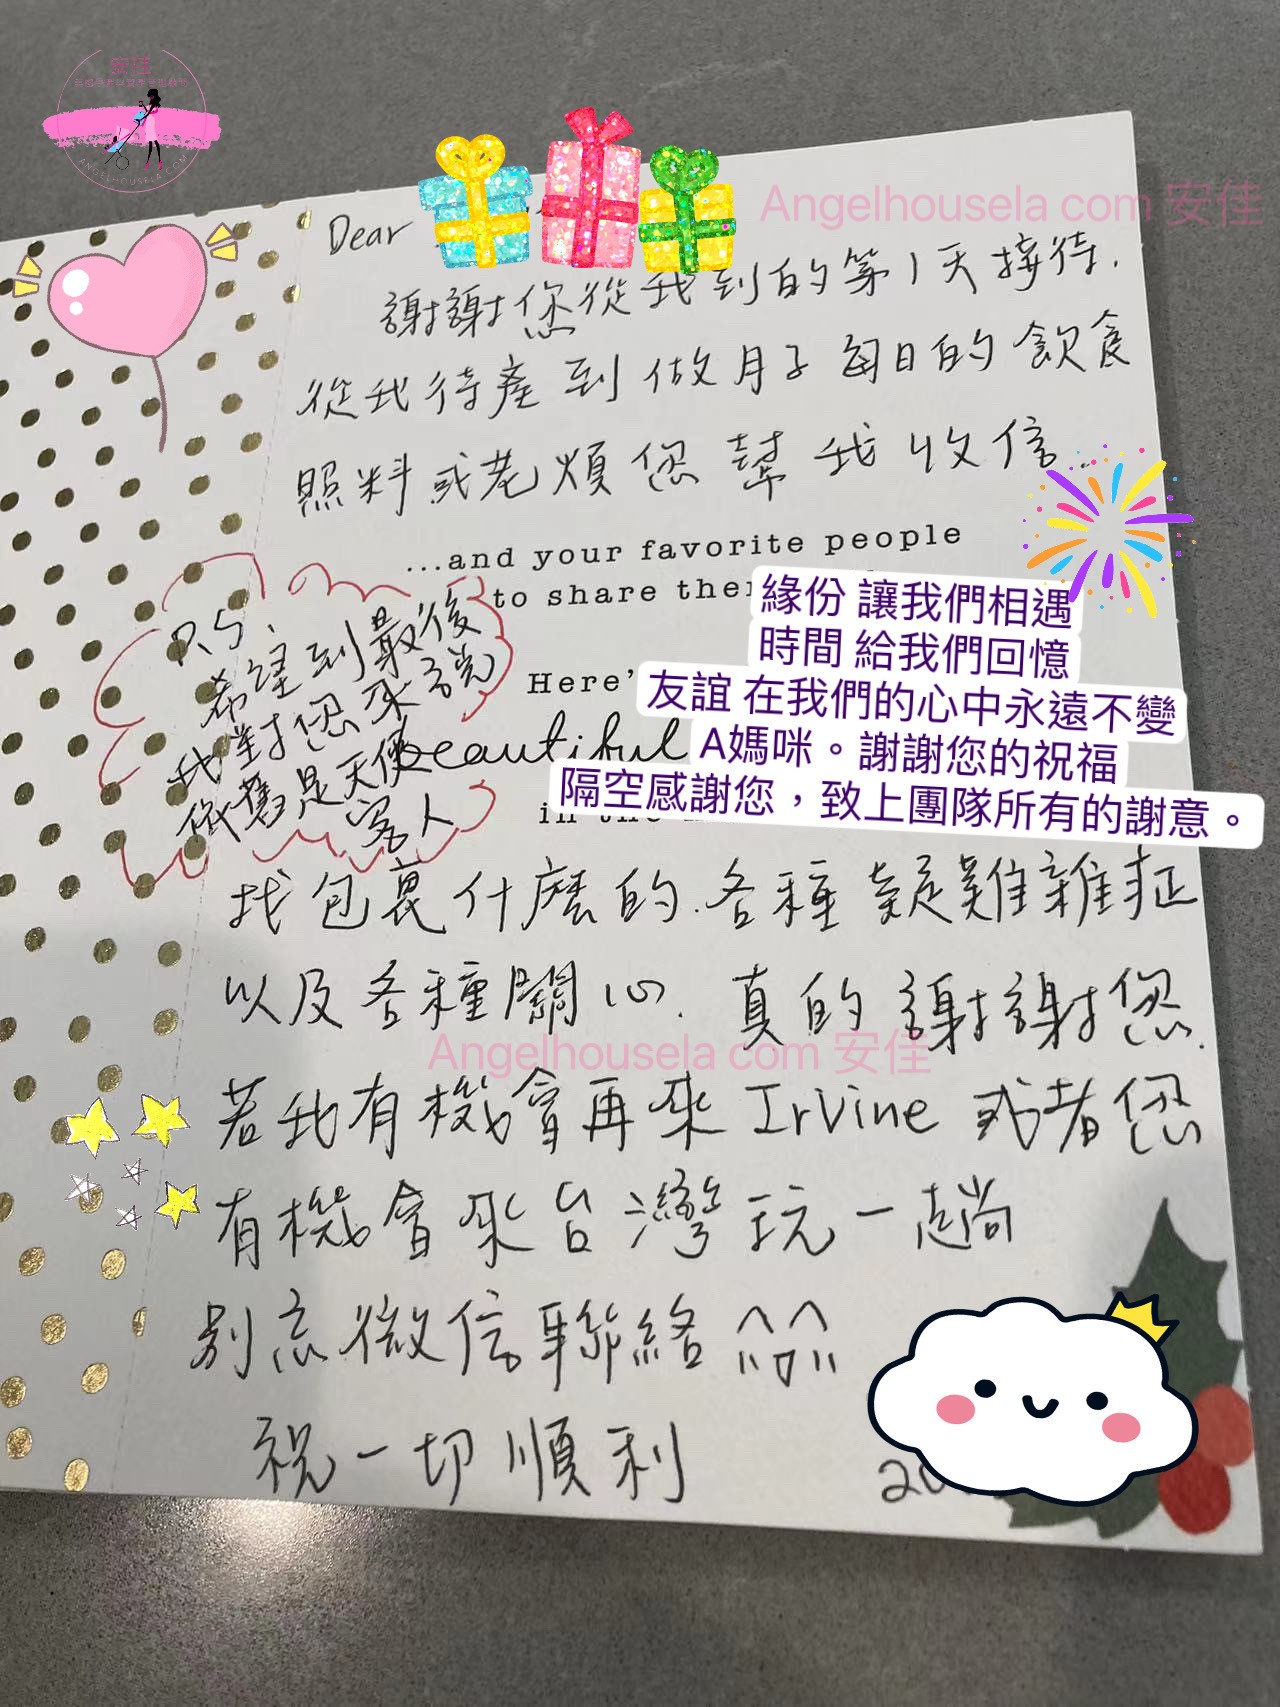 安佳
ANGELHOUSELA.COM
Angelhousela com 安佳
Dear
謝謝您從我到的第1天接待.
從我待產到做月子每日的飲食
照料或老煩您幫我收信
...and your favorite people
to share
緣份 讓我們相遇
時間 給我們回憶
友誼 在我們的心中永遠不變
A媽咪。謝謝您的祝福
隔空感謝您，致上團隊所有的謝意。
P.S.
希望到最後
我對您來說
依舊是天使
客人
Here's
beautiful
in the
找包裹什麼的.各種疑難雜症
以及各種關心.真的謝謝您.
Angelhousela com 安佳
若我有機會再來 Irvine 或者您
有機會來台灣玩一趟
別忘微信聯絡
祝一切順利